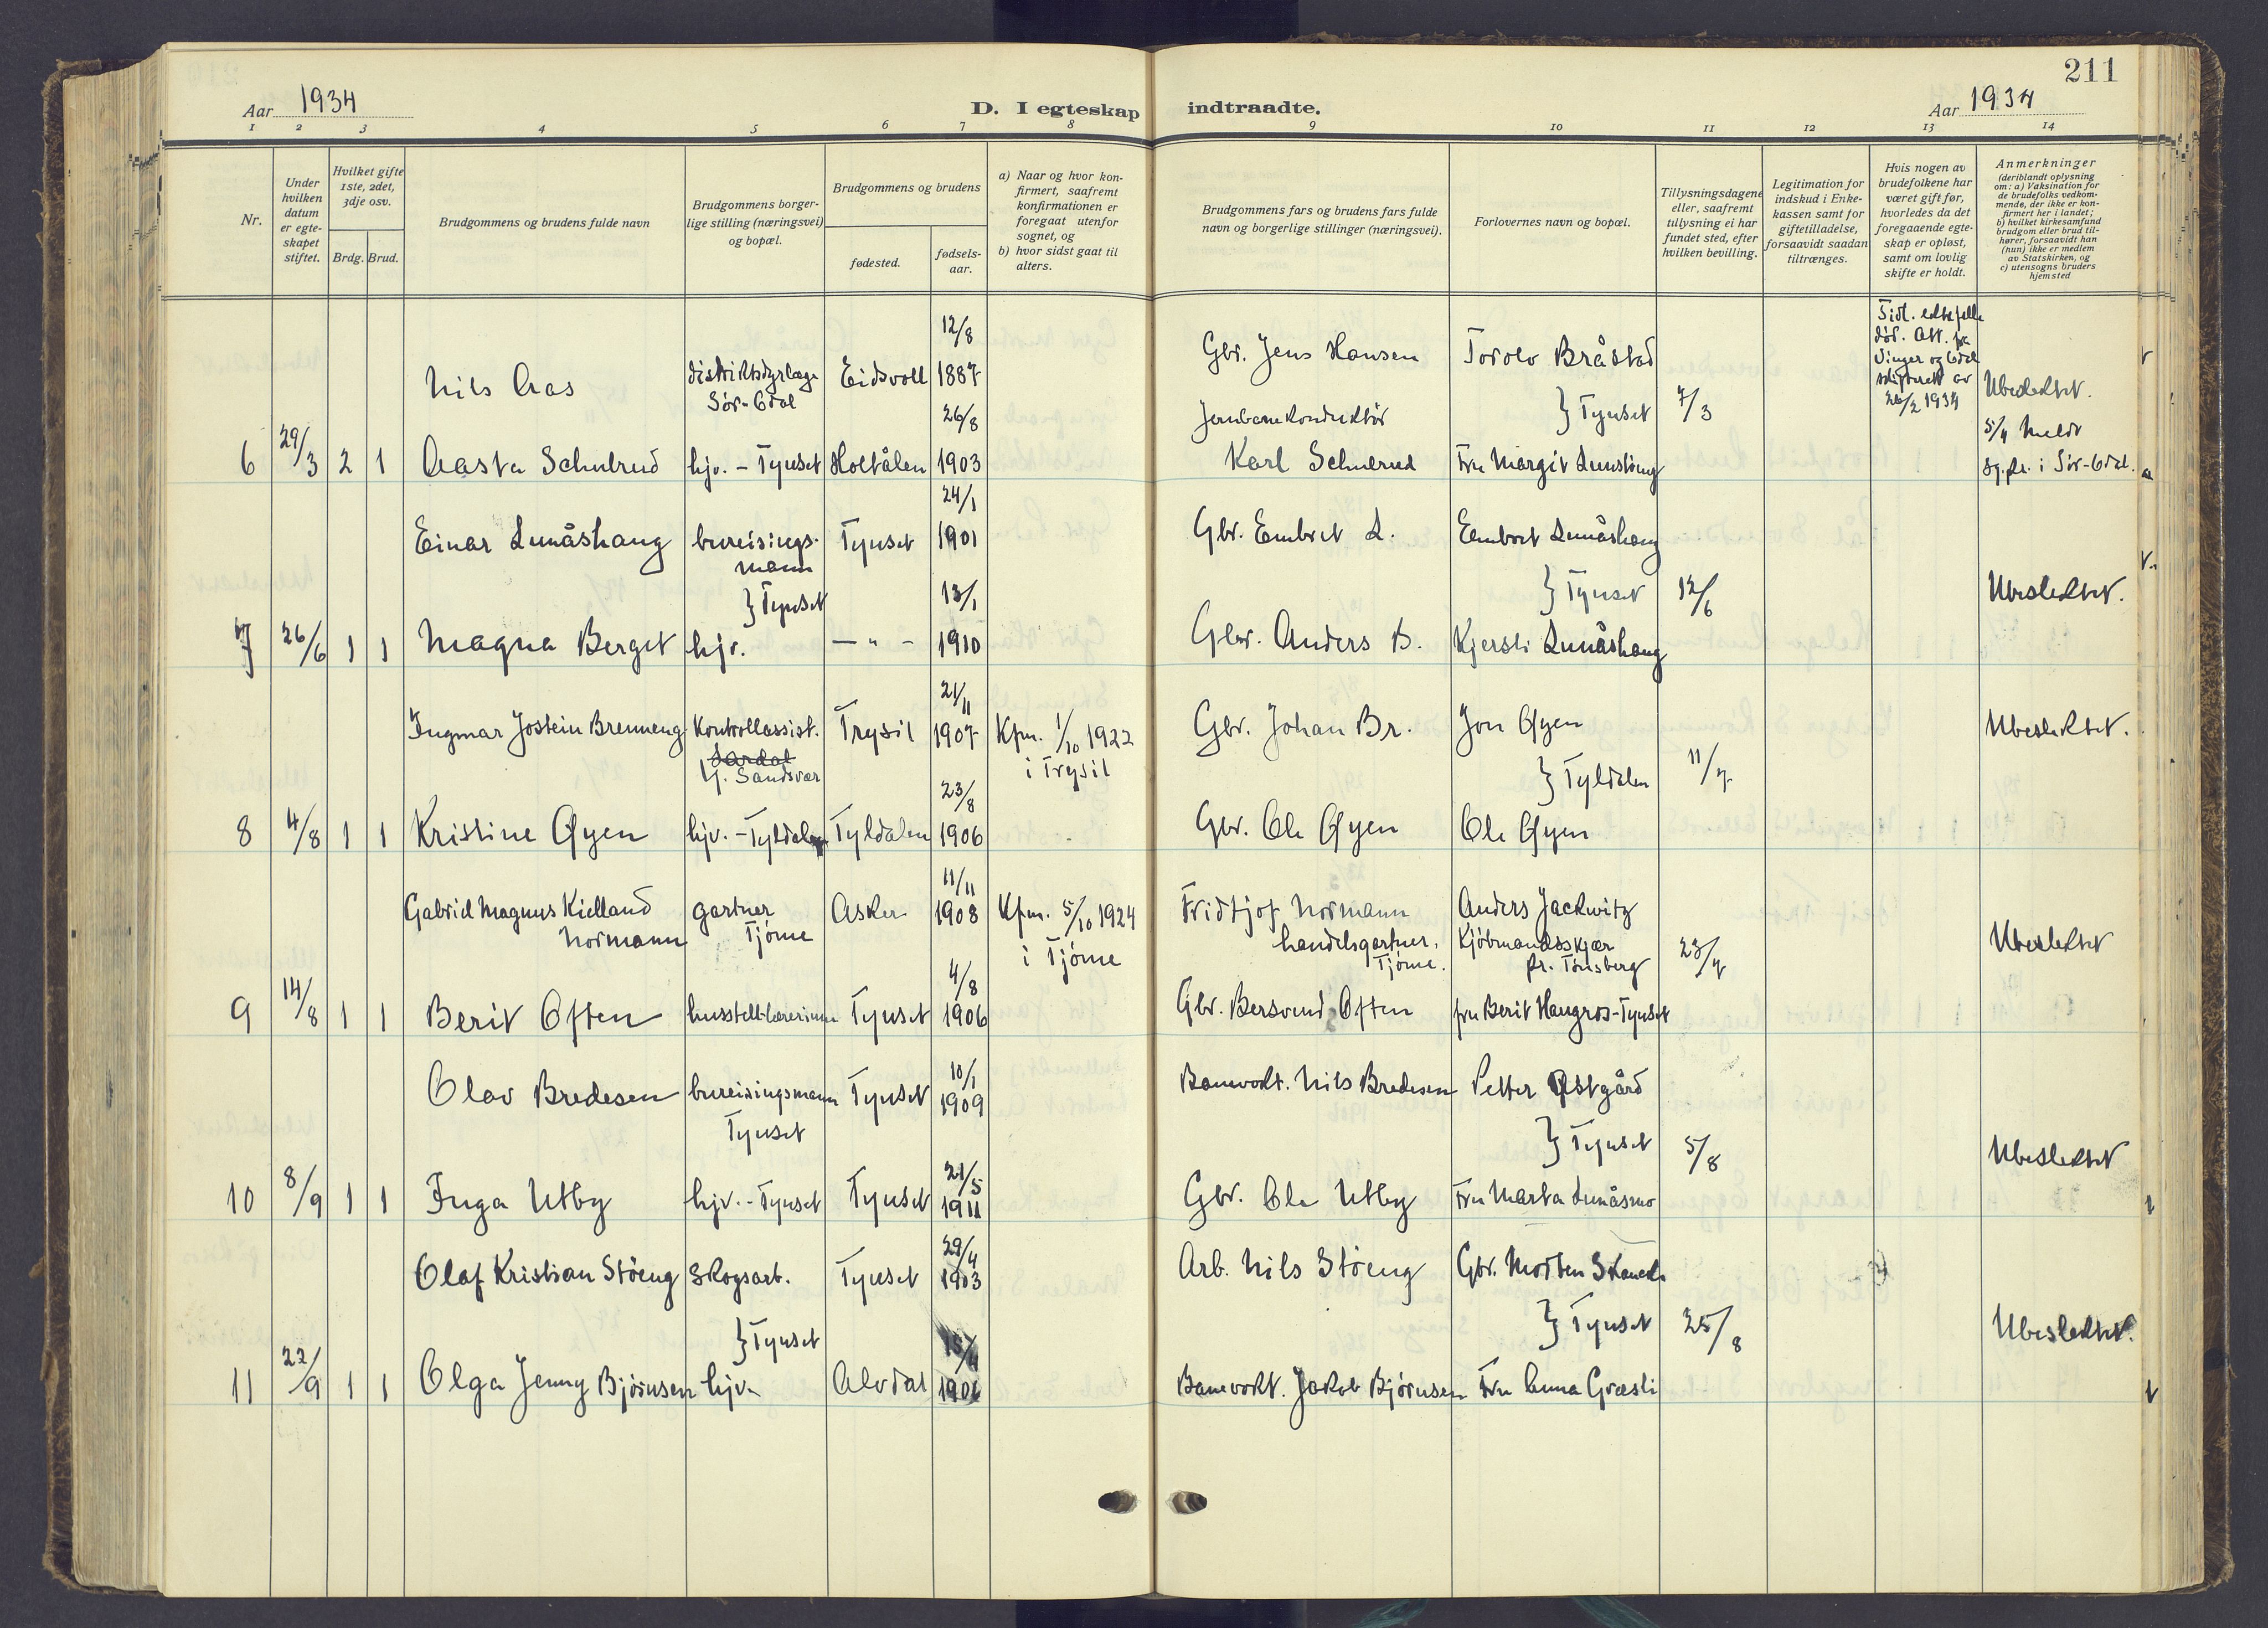 211
Aar 1934
D. I egteskap indtraadte.
Aar 1934
1 2 3 4 5 6 7 8 9 10 11 12 13 14
Nr.
Under hvilken datum er egteskapet stiftet.
Hvilket gifte 1ste, 2det, 3dje osv.
Brdg. Brud.
Brudgommens og brudens fulde navn
Brudgommens borgerlige stilling (næringsvei) og bopæl.
Brudgommens og brudens
fødested.
fødselsaar.
a) Naar og hvor konfirmert, saafremt konfirmationen er foregaat utenfor sognet, og
b) hvor sidst gaat til alters.
Brudgommens fars og brudens fars fulde navn og borgerlige stillinger (næringsvei).
Forlovernes navn og bopæl.
Tillysningsdagene eller, saafremt tillysning ei har fundet sted, efter hvilken bevilling.
Legitimation for indskud i Enkekassen samt for giftetilladelse, forsaavidt saadan tiltrænges.
Hvis nogen av brudefolkene har været gift før, hvorledes da det foregaaende egteskap er opløst, samt om lovlig skifte er holdt.
Anmerkninger
(deriblandt oplysning om: a) Vaksination for de brudefolks vedkommende, der ikke er konfirmert her i landet;
b) hvilket kirkesamfund brudgom eller brud tilhører, forsaavidt han (hun) ikke er medlem av Statskirken, og
c) utensogns bruders hjemsted
12/8
Nils Aas distriktsdyrlæge Eidsvoll 1887 Gbr. Jens Hansen Torolv Bråstad
Sør-Odal
Tidl. ektefelle
død. Att. fra
Vinger og Odal
skifterett av
26/2 1934
Ubeslektet.
26/8 Jernbanekonduktør } Tynset 7/3
5/4 Meldt
6 29/3 2 1 Aasta Schulrud hjv. - Tynset Holtålen 1903 Karl Schulrud Fru Margit Lunstöng
sg.pr. i Sör-Odal.
24/1
Einar Lunåshaug bureisings- Tynset 1901 Gbr. Embret L. Embret Lunåshaug
mann
} Tynset 13/1 } Tynset 12/6 Ubeslektet.
7 26/6 1 1 Magna Berget hjv. — " — 1910 Gbr. Anders B. Kjersti Lunåshaug
21/11
Ingmar Jostein Brenneng Kontrollassist. Trysil 1907 Kfm. 1/10 1922 Gbr. Johan Br. Jon Øyen Ubeslektet.
Y. Sandsvær i Trysil
23/8 } Tyldalen 11/7
8 4/8 1 1 Kristine Øyen hjv. - Tyldalen Tyldalen 1906 - Gbr. Ole Øyen Ole Øyen
11/11
Gabriel Magnus Kielland gartner Asker 1908 Kfm. 5/10 1924 Fridtjof Normann Anders Jackwitz
Normann Tjöme i Tjöme handelsgartner, Kjöbmandsskjær Ubeslektet
Tjöme. pr. Tönsberg 23/7
4/8
9 14/8 1 1 Berit Often husstell-lærerinne Tynset 1906 Gbr. Bersvend Often fru Berit Haugros-Tynset
10/1
Olav Bredesen bureisingsmann Tynset 1909 Banevokt. Nils Bredesen Petter Østgård
Tynset } Tynset 5/8 Ubeslektet
21/5
10 8/9 1 1 Inga Utby hjv. - Tynset Tynset 1911 Gbr. Ole Utby Fru Marta Lunåsmo
29/4
Olaf Kristian Stöeng Skogsarb. Tynset 1903 Arb. Nils Stöeng Gbr. Morten
} Tynset } Tynset 25/8 Ubeslektet.
11 22/9 1 1 Olga Jenny Björnsen hjv. Alvdal Banevokt. Jakob Björnsen Fru Anna Græsli